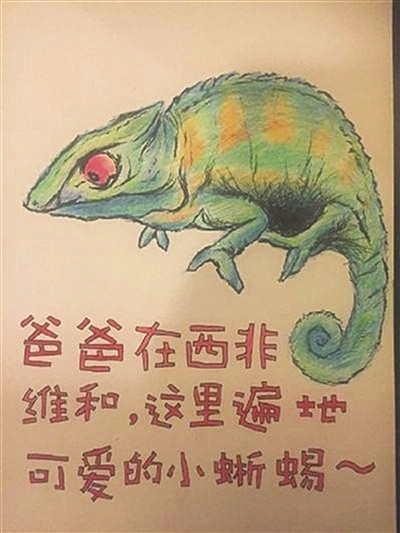 爸爸在西非
维和,这里遍地
可爱的小蜥蜴~